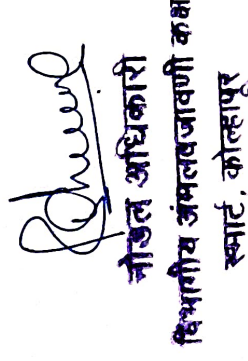 नोडल अधिकारी
विभागीय अंमलबजावणी कक्ष
स्मार्ट कोल्हापूर